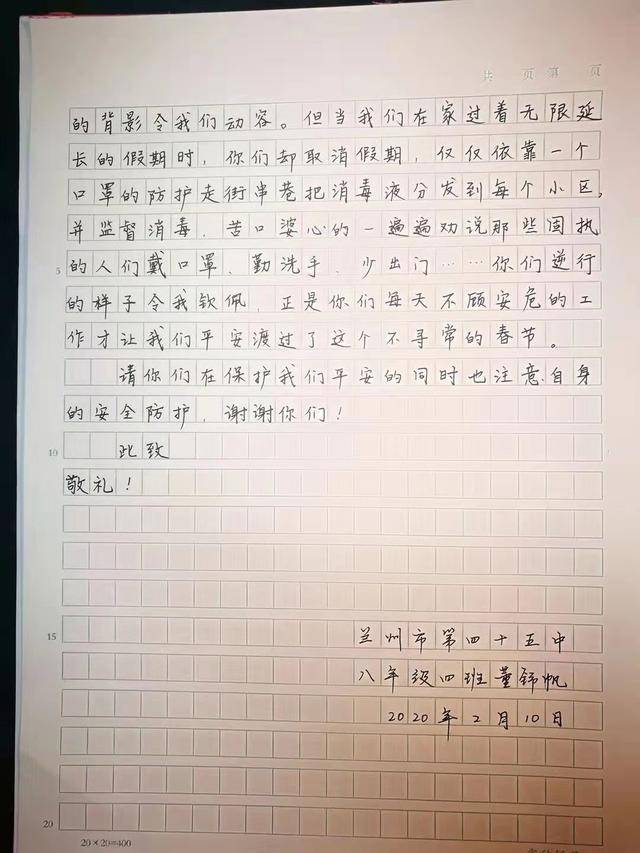 共 页 第 页
的背影令我们动容。但当我们在家过着无限延
长的假期时，你们却取消假期，仅仅依靠一个
口罩的防护走街串巷把消毒液分发到每个小区，
并监督消毒，苦口婆心的一遍遍劝说那些固执
的人们戴口罩、勤洗手、少出门……你们逆行
5
的样子令我钦佩，正是你们每天不顾安危的工
作才让我们平安渡过了这个不寻常的春节。
请你们在保护我们平安的同时也注意自身
的安全防护，谢谢你们！
此致
10
敬礼！
兰州市第四十五中
15
八年级四班董帆
2020年2月10日
20
20×20=400